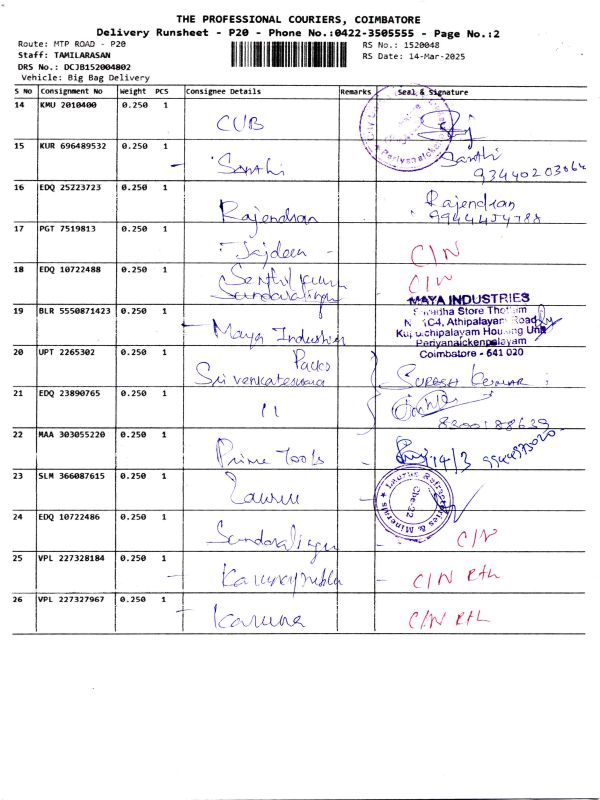 THE PROFESSIONAL COURIERS, COIMBATORE
Delivery Runsheet - P20 - Phone No.:0422-3505555 - Page No.:2
Route: MTP ROAD - P20
RS No.: 1520048
Staff: TAMILARASAN
RS Date: 14-Mar-2025
DRS No.: DCJB152004802
Vehicle: Big Bag Delivery
S NO Consignment No Weight PCS Consignee Details Remarks Seal & Signature
14 KMU 2010400 0.250 1
CUB
15 KUR 696489532 0.250 1
Santhi Santhi
93440203064
16 EDQ 25223723 0.250 1
Rajendran Rajendran
9944454788
17 PGT 7519813 0.250 1
C/N
18 EDQ 10722488 0.250 1
C/N
MAYA INDUSTRIES
19 BLR 5550871423 0.250 1
Store
Athipalayam Road
Housing Unit
Maya Periyanaickenpalayam
Coimbatore - 641 020
20 UPT 2265302 0.250 1
Packs
Sri venkateswara SURESH KUMAR
21 EDQ 23890765 0.250 1
11
8200188639
22 MAA 303055220 0.250 1
Prime Tools 14/3
23 SLM 366087615 0.250 1
Laurus Refractories & Minerals
Cbe-22
24 EDQ 10722486 0.250 1
C/N
25 VPL 227328184 0.250 1
C/N
26 VPL 227327967 0.250 1
Karuna C/N